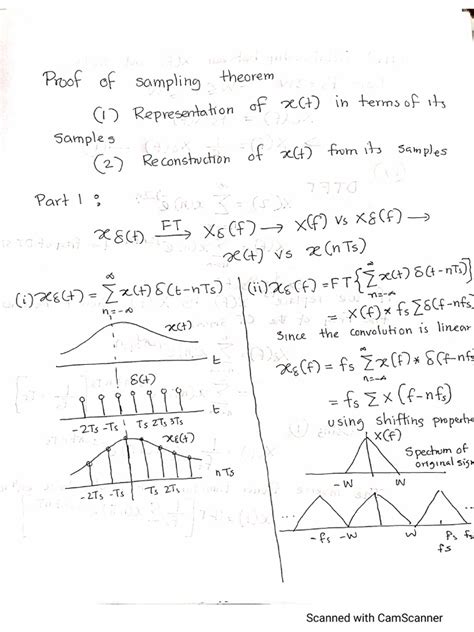 Proof of sampling theorem
(1) Representation of x(t) in terms of its
samples
(2) Reconstruction of x(t) from its samples
Part 1 :
xδ(t) FT→ Xδ(f) → X(f) vs Xδ(f) →
x(t) vs x(nTs)
(i) xδ(t) = ∞ Σ n=-∞ x(t) δ(t-nTs)
x(t)
t
δ(t)
t
-2Ts -Ts Ts 2Ts 3Ts
xδ(t)
nTs
-2Ts -Ts Ts 2Ts
(ii) xδ(f) = FT{∞ Σ n=-∞ x(t) δ(t-nTs)}
= X(f) * fs Σδ(f-nfs
Since the convolution is linear
xδ(f) = fs ∞ Σ n=-∞ X(f) * δ(f-nfs
= fs Σ X(f-nfs)
using shifting properties
X(f)
Spectrum of
original sign
-W W
-fs -W W
fs
Scanned with CamScanner